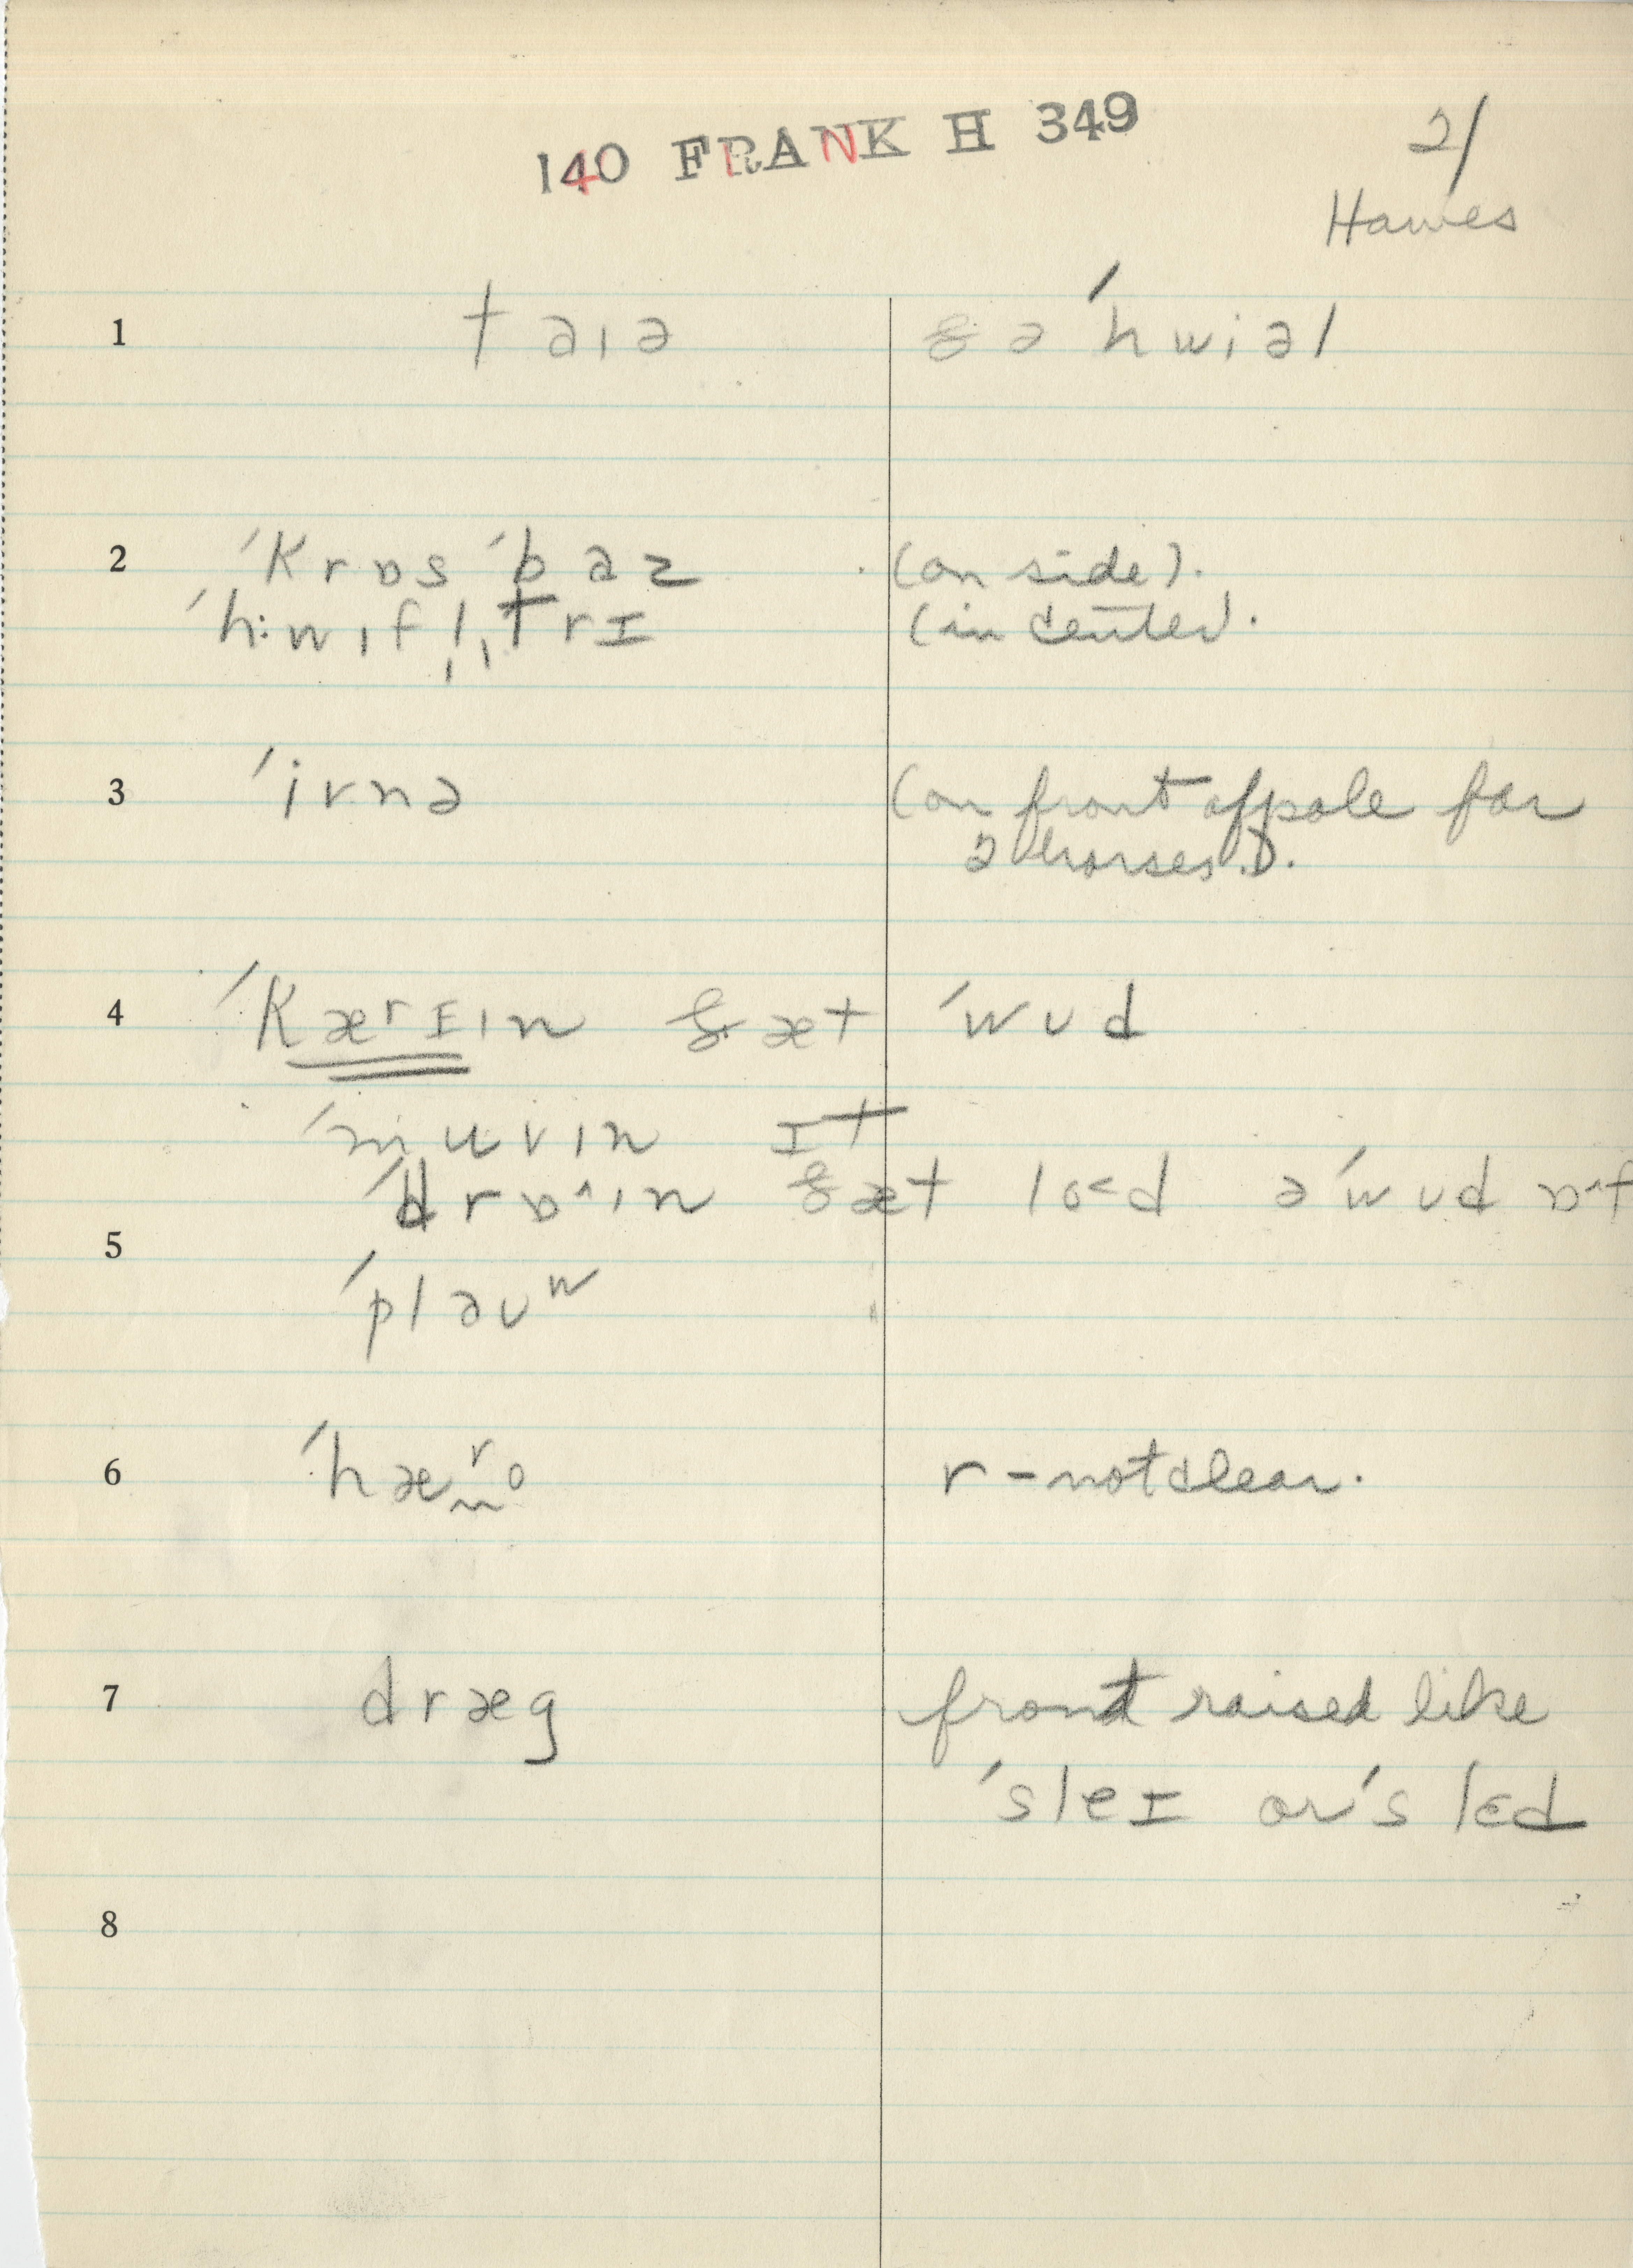 140 FRANK H 349
21
Hawes
1 taɪə ðə ˈhwiəl
2 ˈkrɒs ˈbaz (on side).
ˈhwɪfl̩ˌtrɪ (in center).
3 ˈivnə (on front of pole for
2 horses).
4 ˈkærɪɪn ðæt ˈwud
ˈmuvɪn ɪt
ˈdrɒ^ɪn ðæt lo<d əˈwud ɒ^f
5 ˈplauʷ
6 ˈhæʳo r - not clear.
7 dræg front raised like
ˈsleɪ or ˈslɛd
8